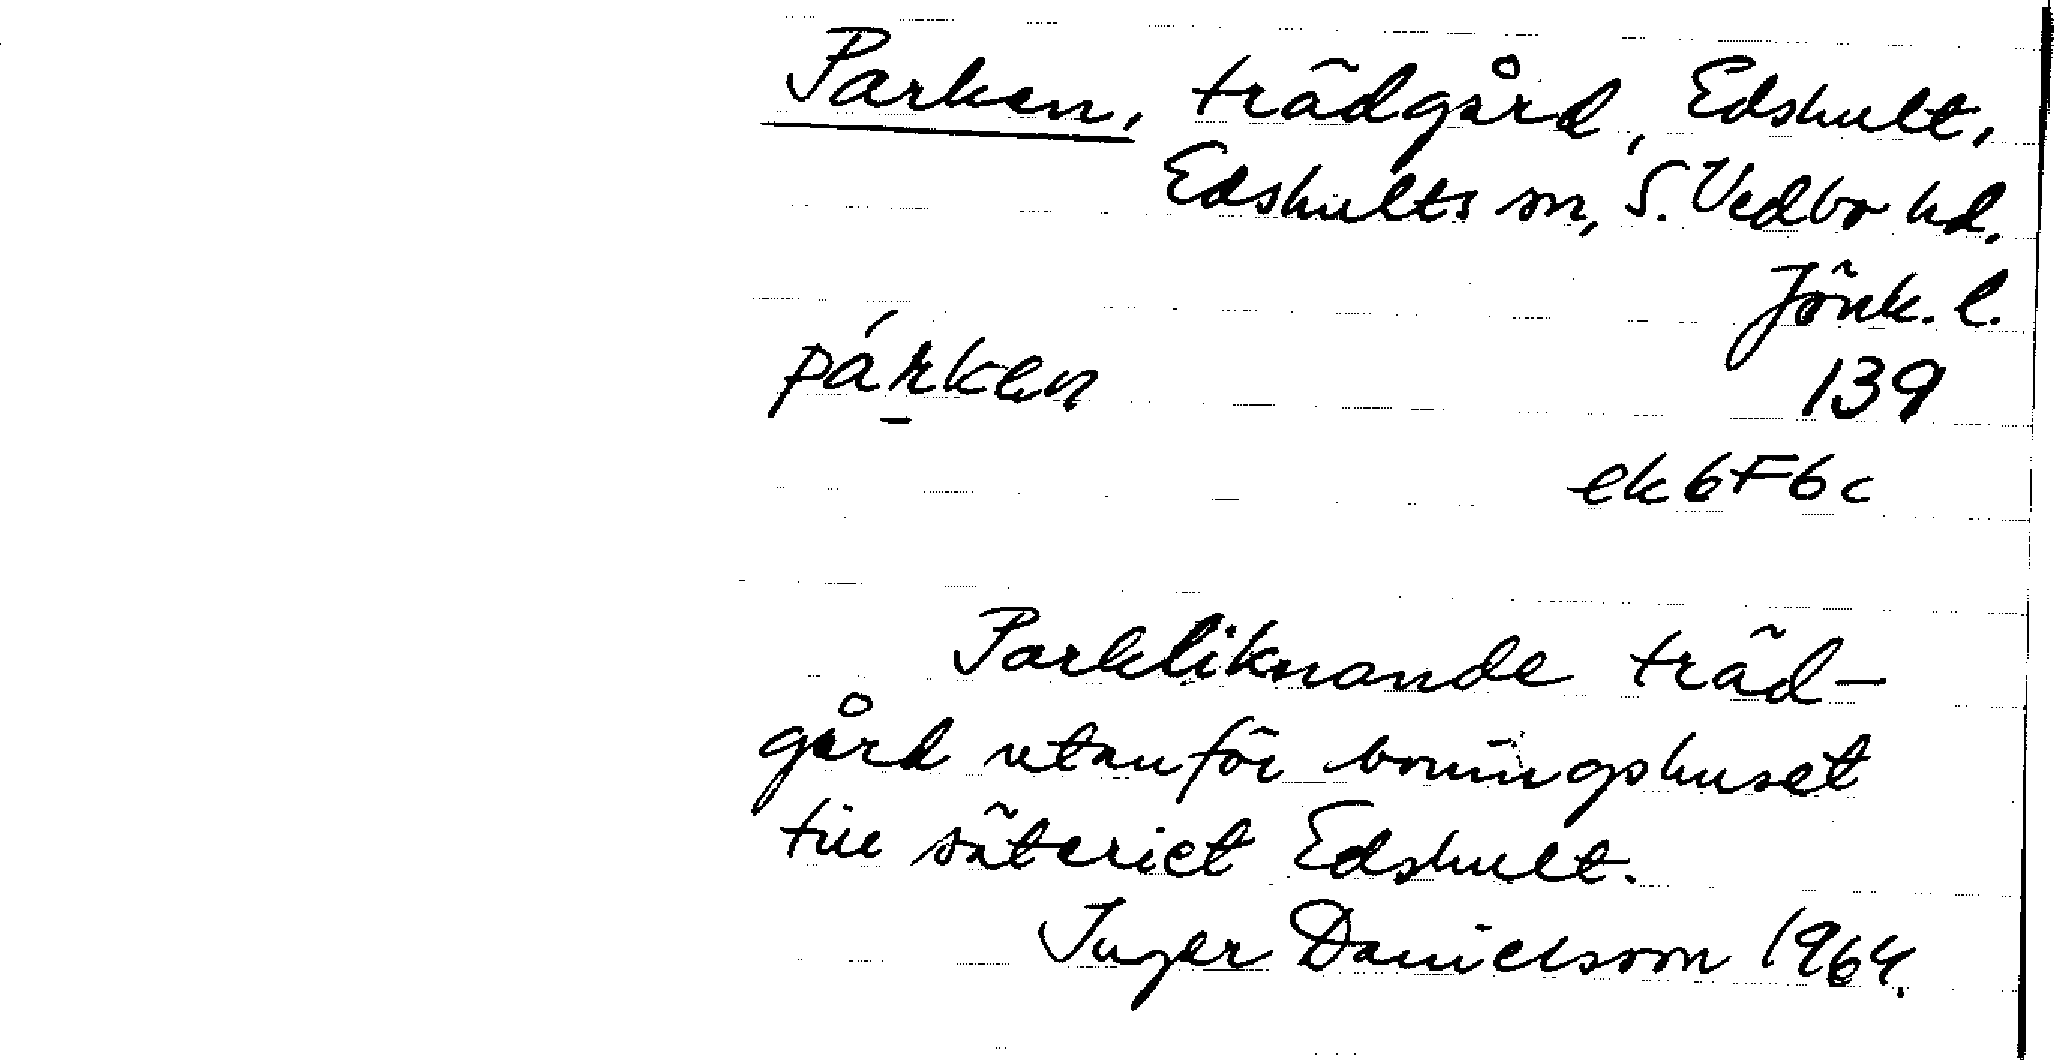 Parken, trädgård, Edshult,
Edshults sn, S. Vedbo hd.
Jönk. l.
párken 139
ek 6F6c
Parkliknande träd-
gård utanför boningshuset
till säteriet Edshult.
Inger Danielsson 1964.